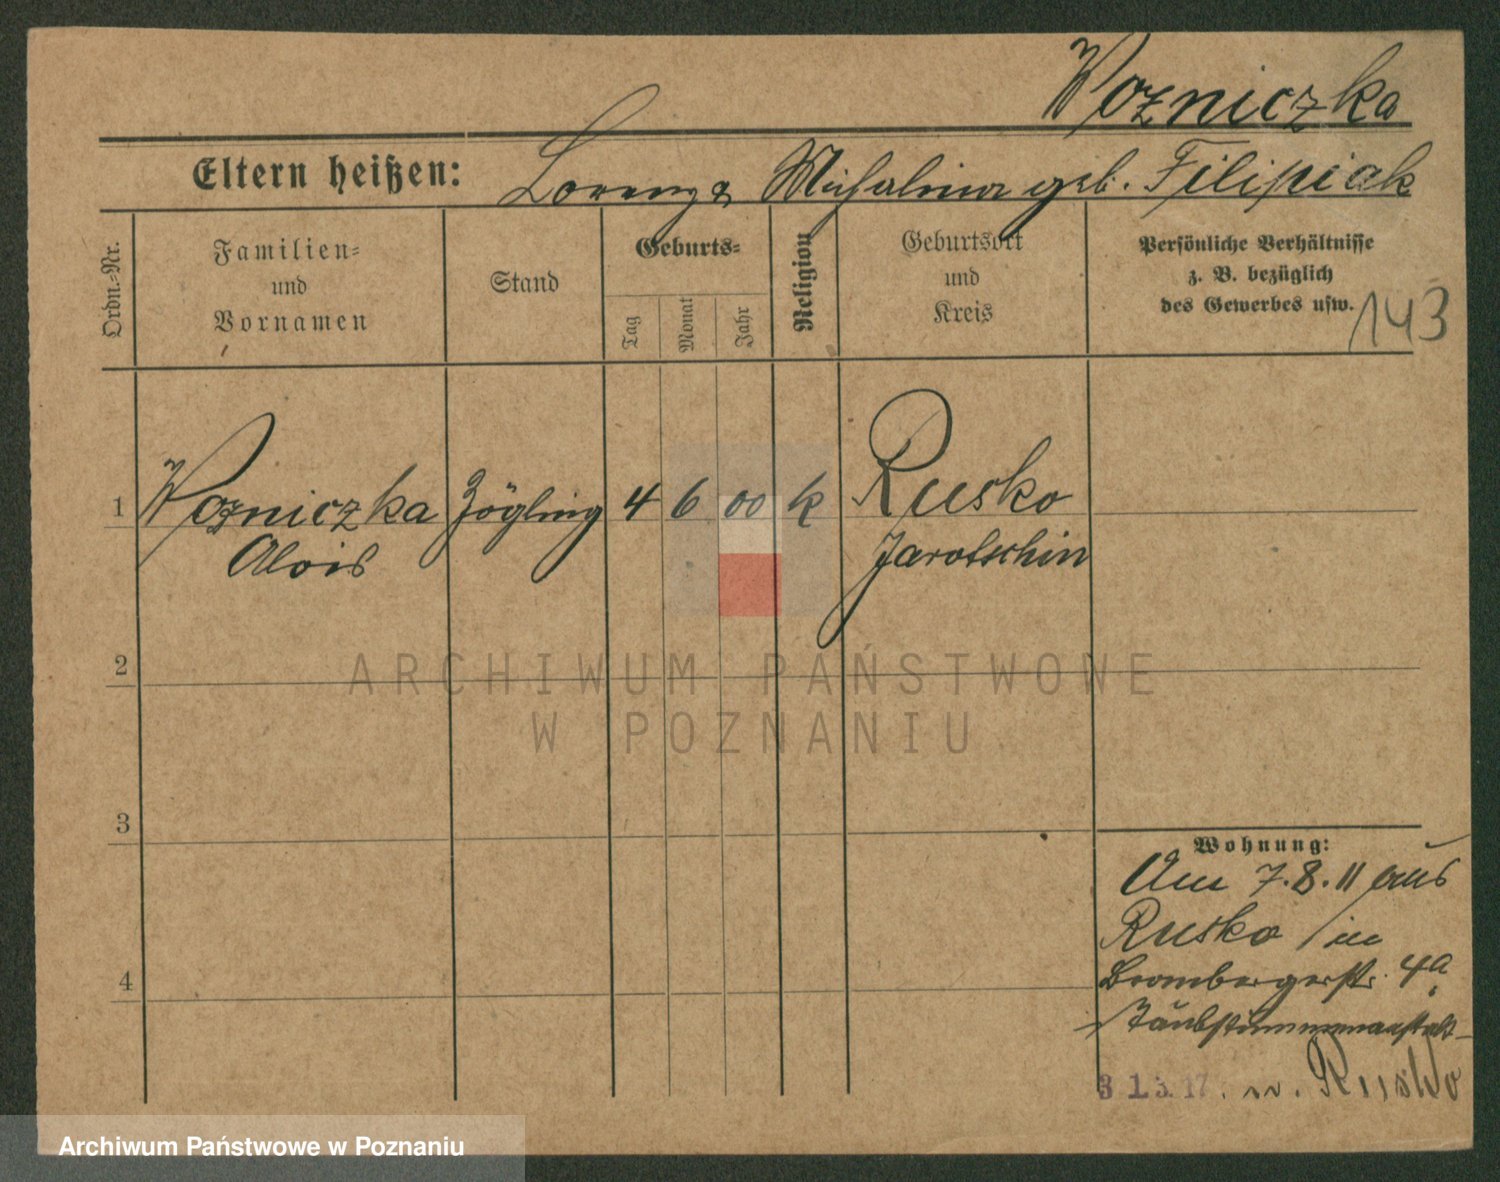 Wozniczka
Eltern heißen: Lorenz & Michalina geb. Filipiak
Ordn.-Nr.
Familien-
und
Vornamen
Stand
Geburts-
Tag
Monat
Jahr
Religion
Geburtsort
und
Kreis
Persönliche Verhältnisse
z. B. bezüglich
des Gewerbes usw.
143
1 Wozniczka Zögling 4 6 00 k Rusko
Alois Jarotschin
2
ARCHIWUM PAŃSTWOWE
W POZNANIU
3
Wohnung:
Am 7.8.11 aus
Rusko in
Brombergerstr. 4a
Taubstummenanstalt
31.3.17. n. Rusko
4
Archiwum Państwowe w Poznaniu